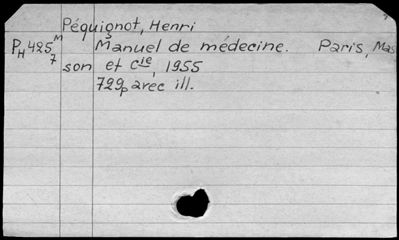 Péquignot, Henri
PH425 M Manuel de médecine. Paris, Mas
7 son et Cie, 1955
729p avec ill.